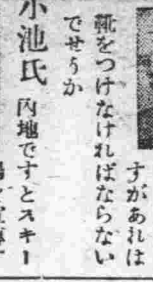 すがあれは
靴をつけなければならない
でせうか
小池氏 内地ですとスキー